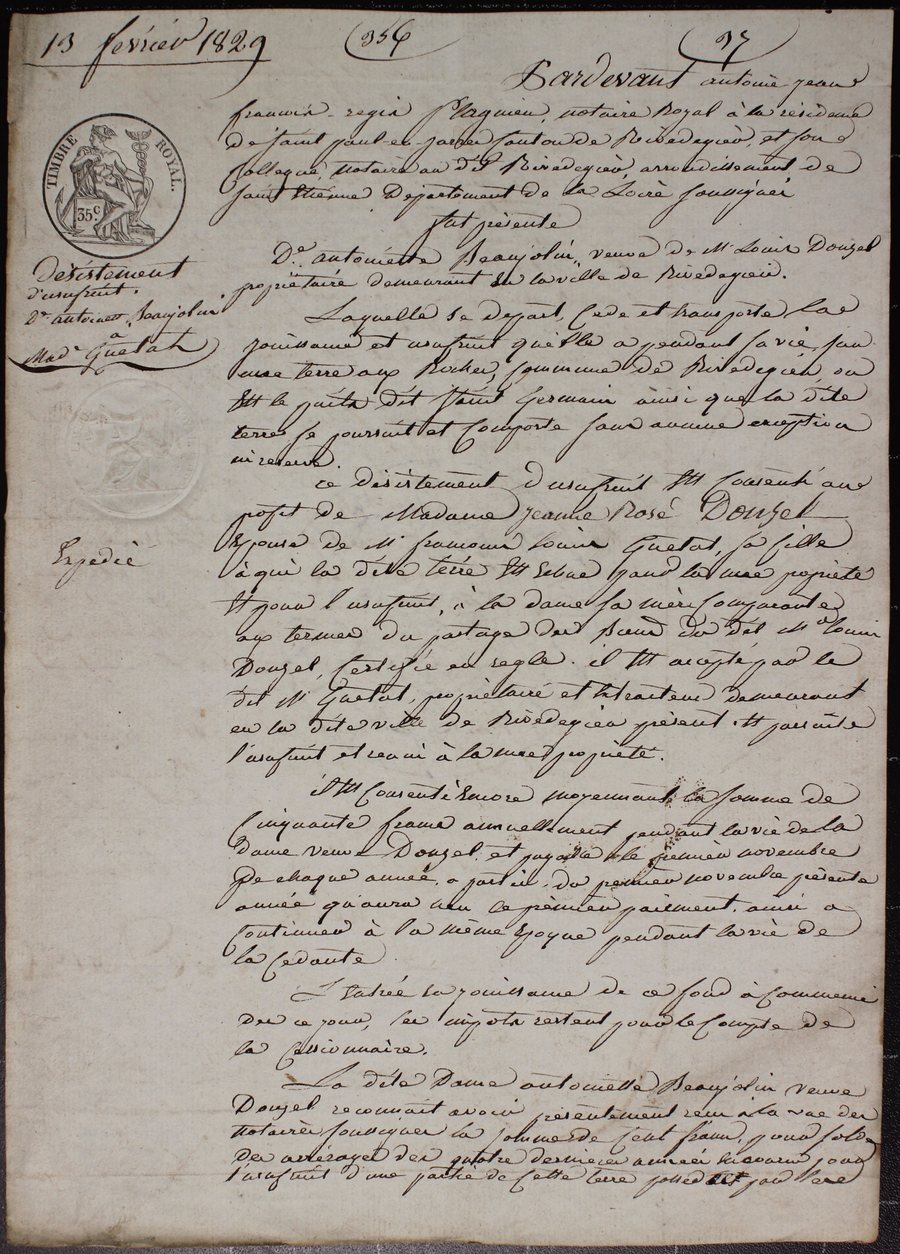 13 février 1829
(356)
37
Pardevant antoine jean
francois-regis notaire Royal à la résidence
de saint paul-en-jarret canton de Rivedegier, et son
Collegue, notaire au dit Rivedegier, arrondissement de
saint Etienne Département de la Loire soussignés
fut présente
De. antoinette Beaujolin, veuve de Mr Louis Donzel
propriétaire demeurant en la ville de Rivedegier.
Laquelle se depart, Cede et transporte la
jouissance et usufruit qu'elle a pendant sa vie, sur
une terre aux Rocher, Commune de Rivedegier, ou
Est le puits dit saint Germain ainsi que la dite
terre se poursuit et Comporte sans aucune exception
ni reserve.
ce désistement d'usufruit Est Consenti au
profit de Madame jeanne Rose Donzel
Epouse de Mr francois Louis Guetat, sa fille
à qui la dite terre Est Echue pour la nue propriété
Et pour l'usufruit, à la dame sa mère Comparante
aux termes du partage des Biens du dit Mr Louis
Donzel, Certifié en regle. il Est accepté par le
dit Mr Guetat, propriétaire et demeurant
en la dite ville de Rivedegier présent Et par suite
l'usufruit et reuni à la nue propriété.
il Est Consenti Encore moyennant la somme de
Cinquante francs annuellement pendant la vie de la
dame veuve Donzel, et payable le premier novembre
De chaque année, a partir du premier novembre présente
année qu'aura lieu ce premier paiement. ainsi a
Continuer à la même Epoque pendant la vie de
la Cedante.
L'Entrée en jouissance de ce fond à Commencé
Des ce jour, les impots restent pour le Compte de
la Cessionnaire.
La dite Dame antoinette Beaujolin veuve
Donzel reconnait avoir présentement recu à la vue des
notaires soussignés la somme de Cent francs, pour solde
des arrérages des quatre dernieres années encourus pour
l'usufruit d'une partie de Cette terre
TIMBRE ROYAL.
35c.
Desistement
d'usufruit.
De antoinette Beaujolin
a
Made Guetat
Expedié